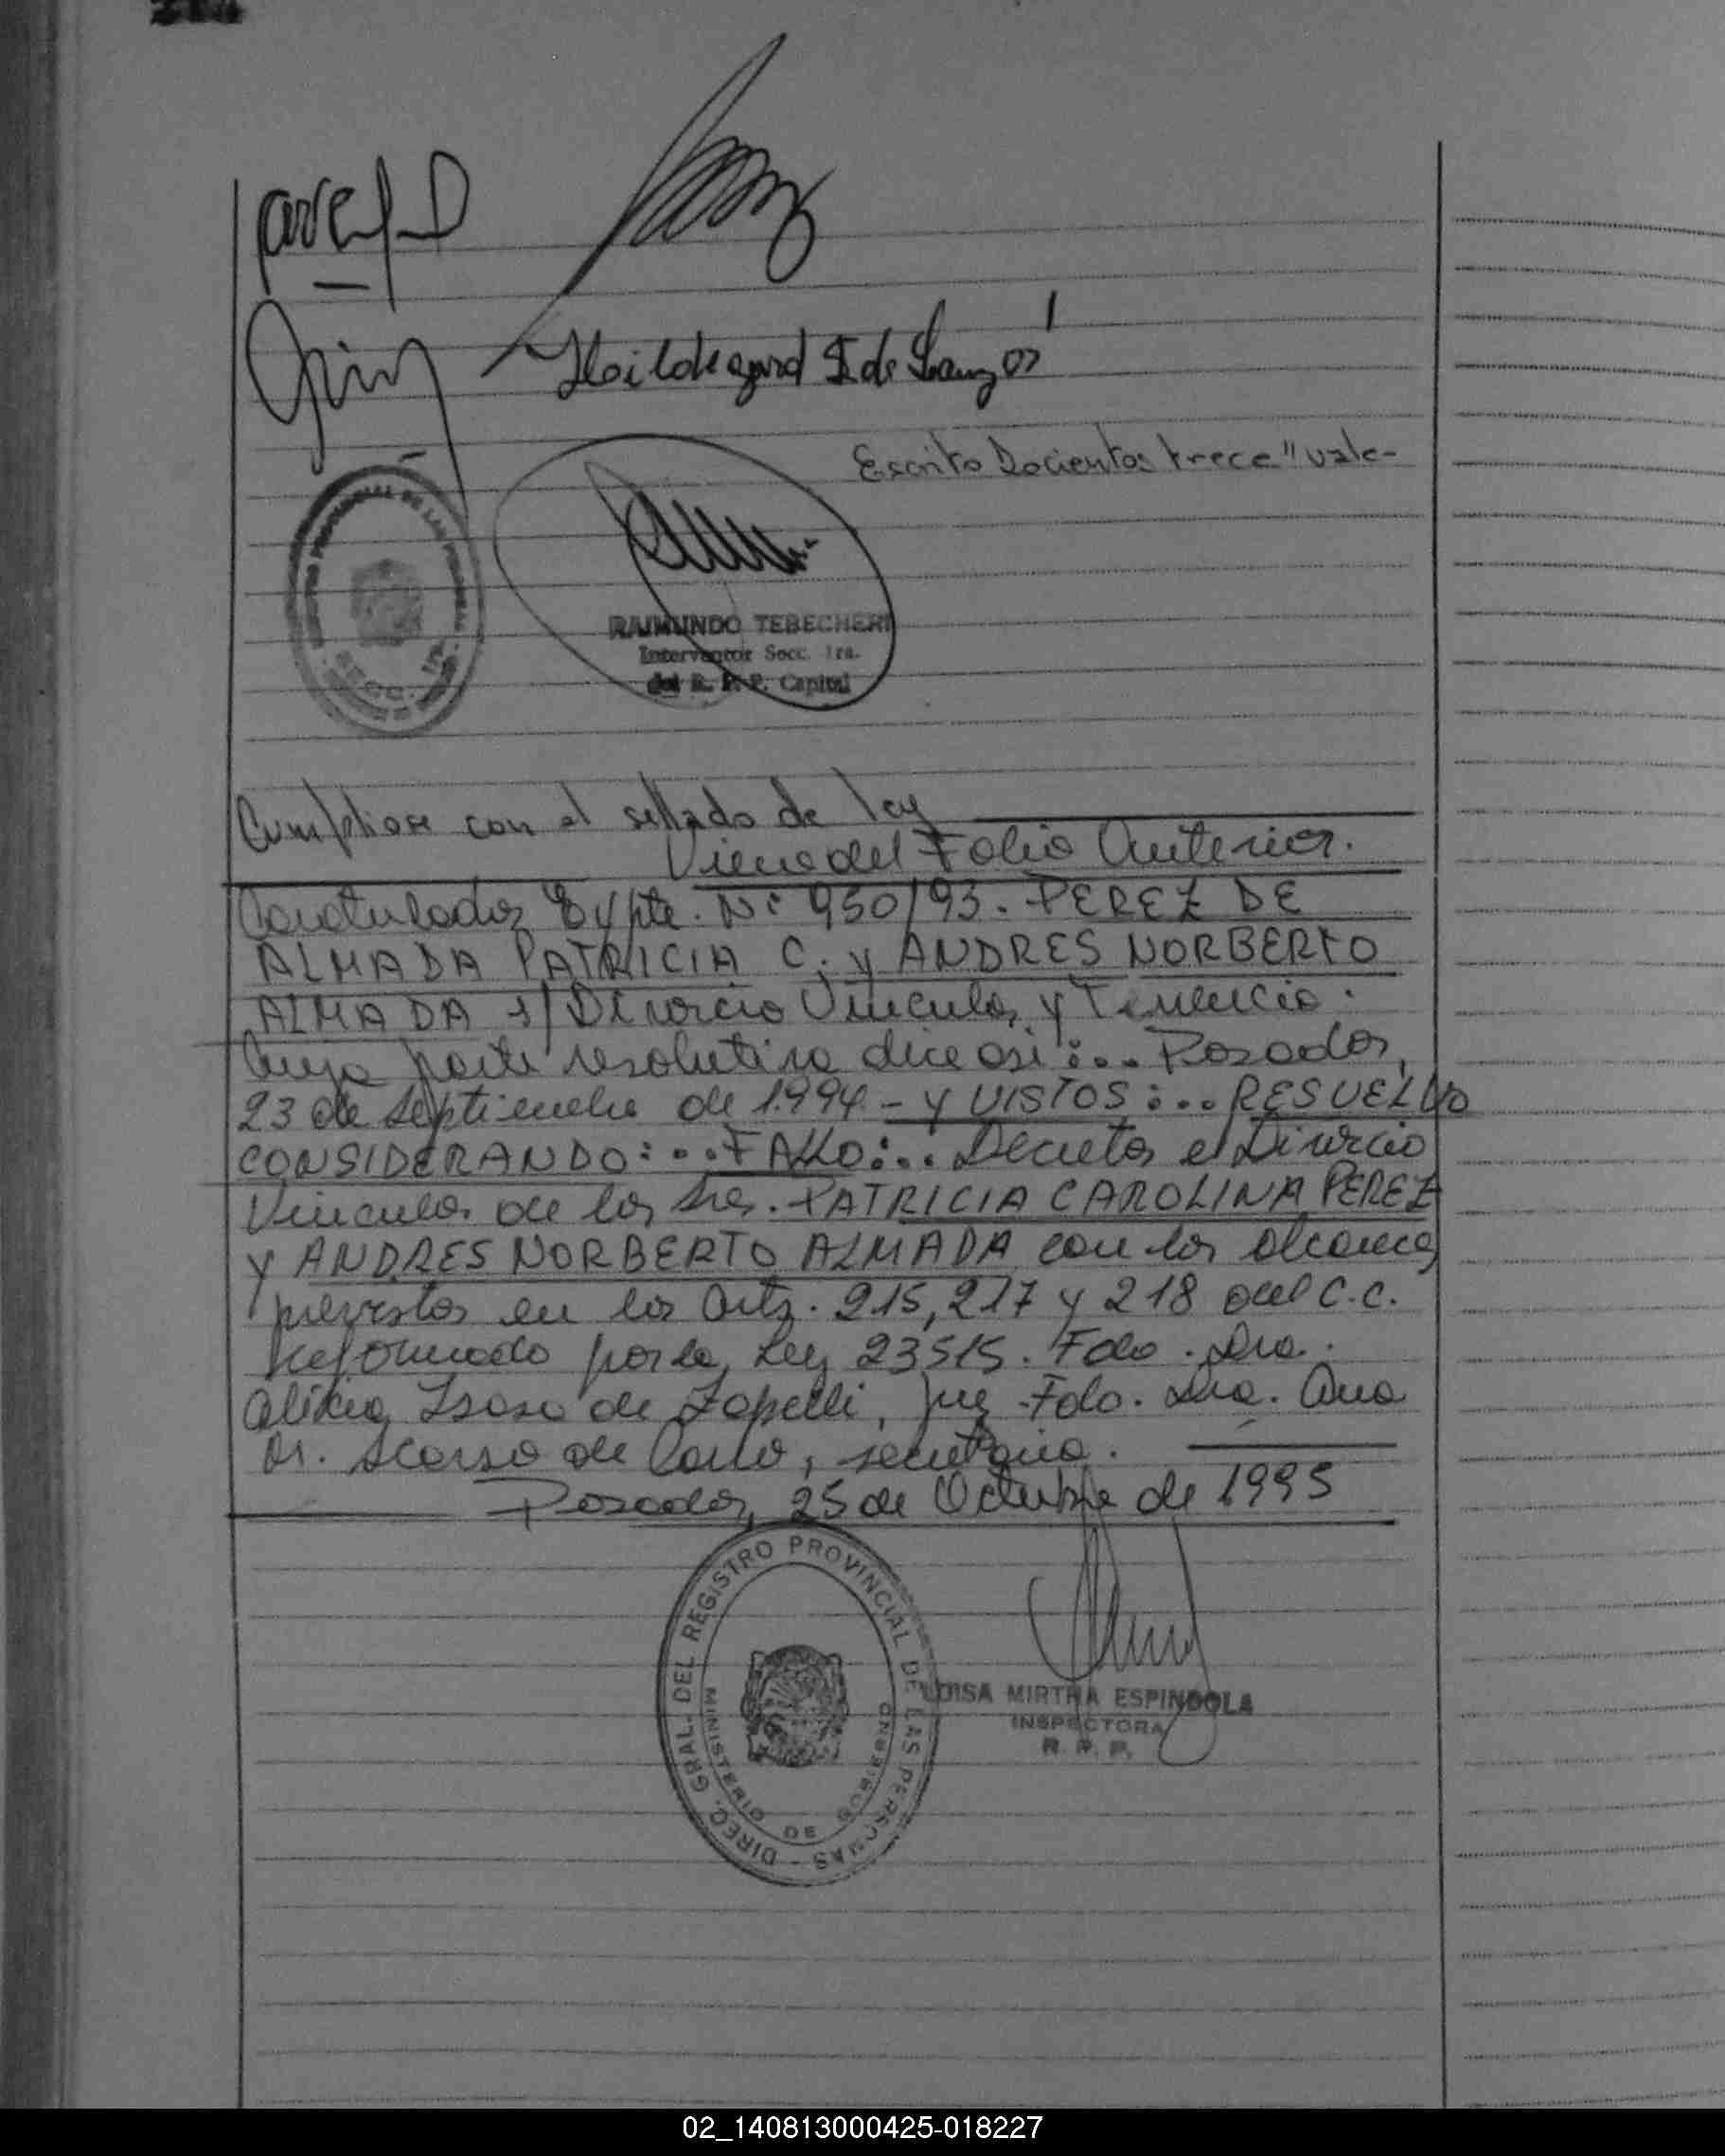 Hildegard I de Lanzós
Escrito Docientos trece" vale-
REGISTRO PROVINCIAL DE LAS PERSONAS
SECC. 1RA.
RAIMUNDO TEBECHERI
Interventor Secc. 1ra.
del R. P. P. Capital
Cumpliose con el sellado de ley
Viene del Folio Anterior.
Caratulados Expte. Nº 950/93. PEREZ DE
ALMADA PATRICIA C. y ANDRES NORBERTO
ALMADA s/ Divorcio Vincular y Tenencia.
Cuya parte resolutiva dice asi:... Posadas,
23 de Septiembre de 1.994.- y VISTOS:... RESUELVO
CONSIDERANDO:... FALLO:... Decretar el Divorcio
Vincular de los Sres. PATRICIA CAROLINA PEREZ
y ANDRES NORBERTO ALMADA con los alcances
previstos en los Arts. 215, 217 y 218 del C.C.
Reformado por la Ley 23515. Fdo. Dra.
Alikia de Zapelli, Juez Fdo. Dra. Ana
M. de, secretaria.
Posadas, 25 de Octubre de 1995
DIREC. GRAL. DEL REGISTRO PROVINCIAL DE LAS PERSONAS -
MINISTERIO DE GOBIERNO
LUISA MIRTHA ESPINDOLA
INSPECTORA
R. P. P.
02_140813000425-018227